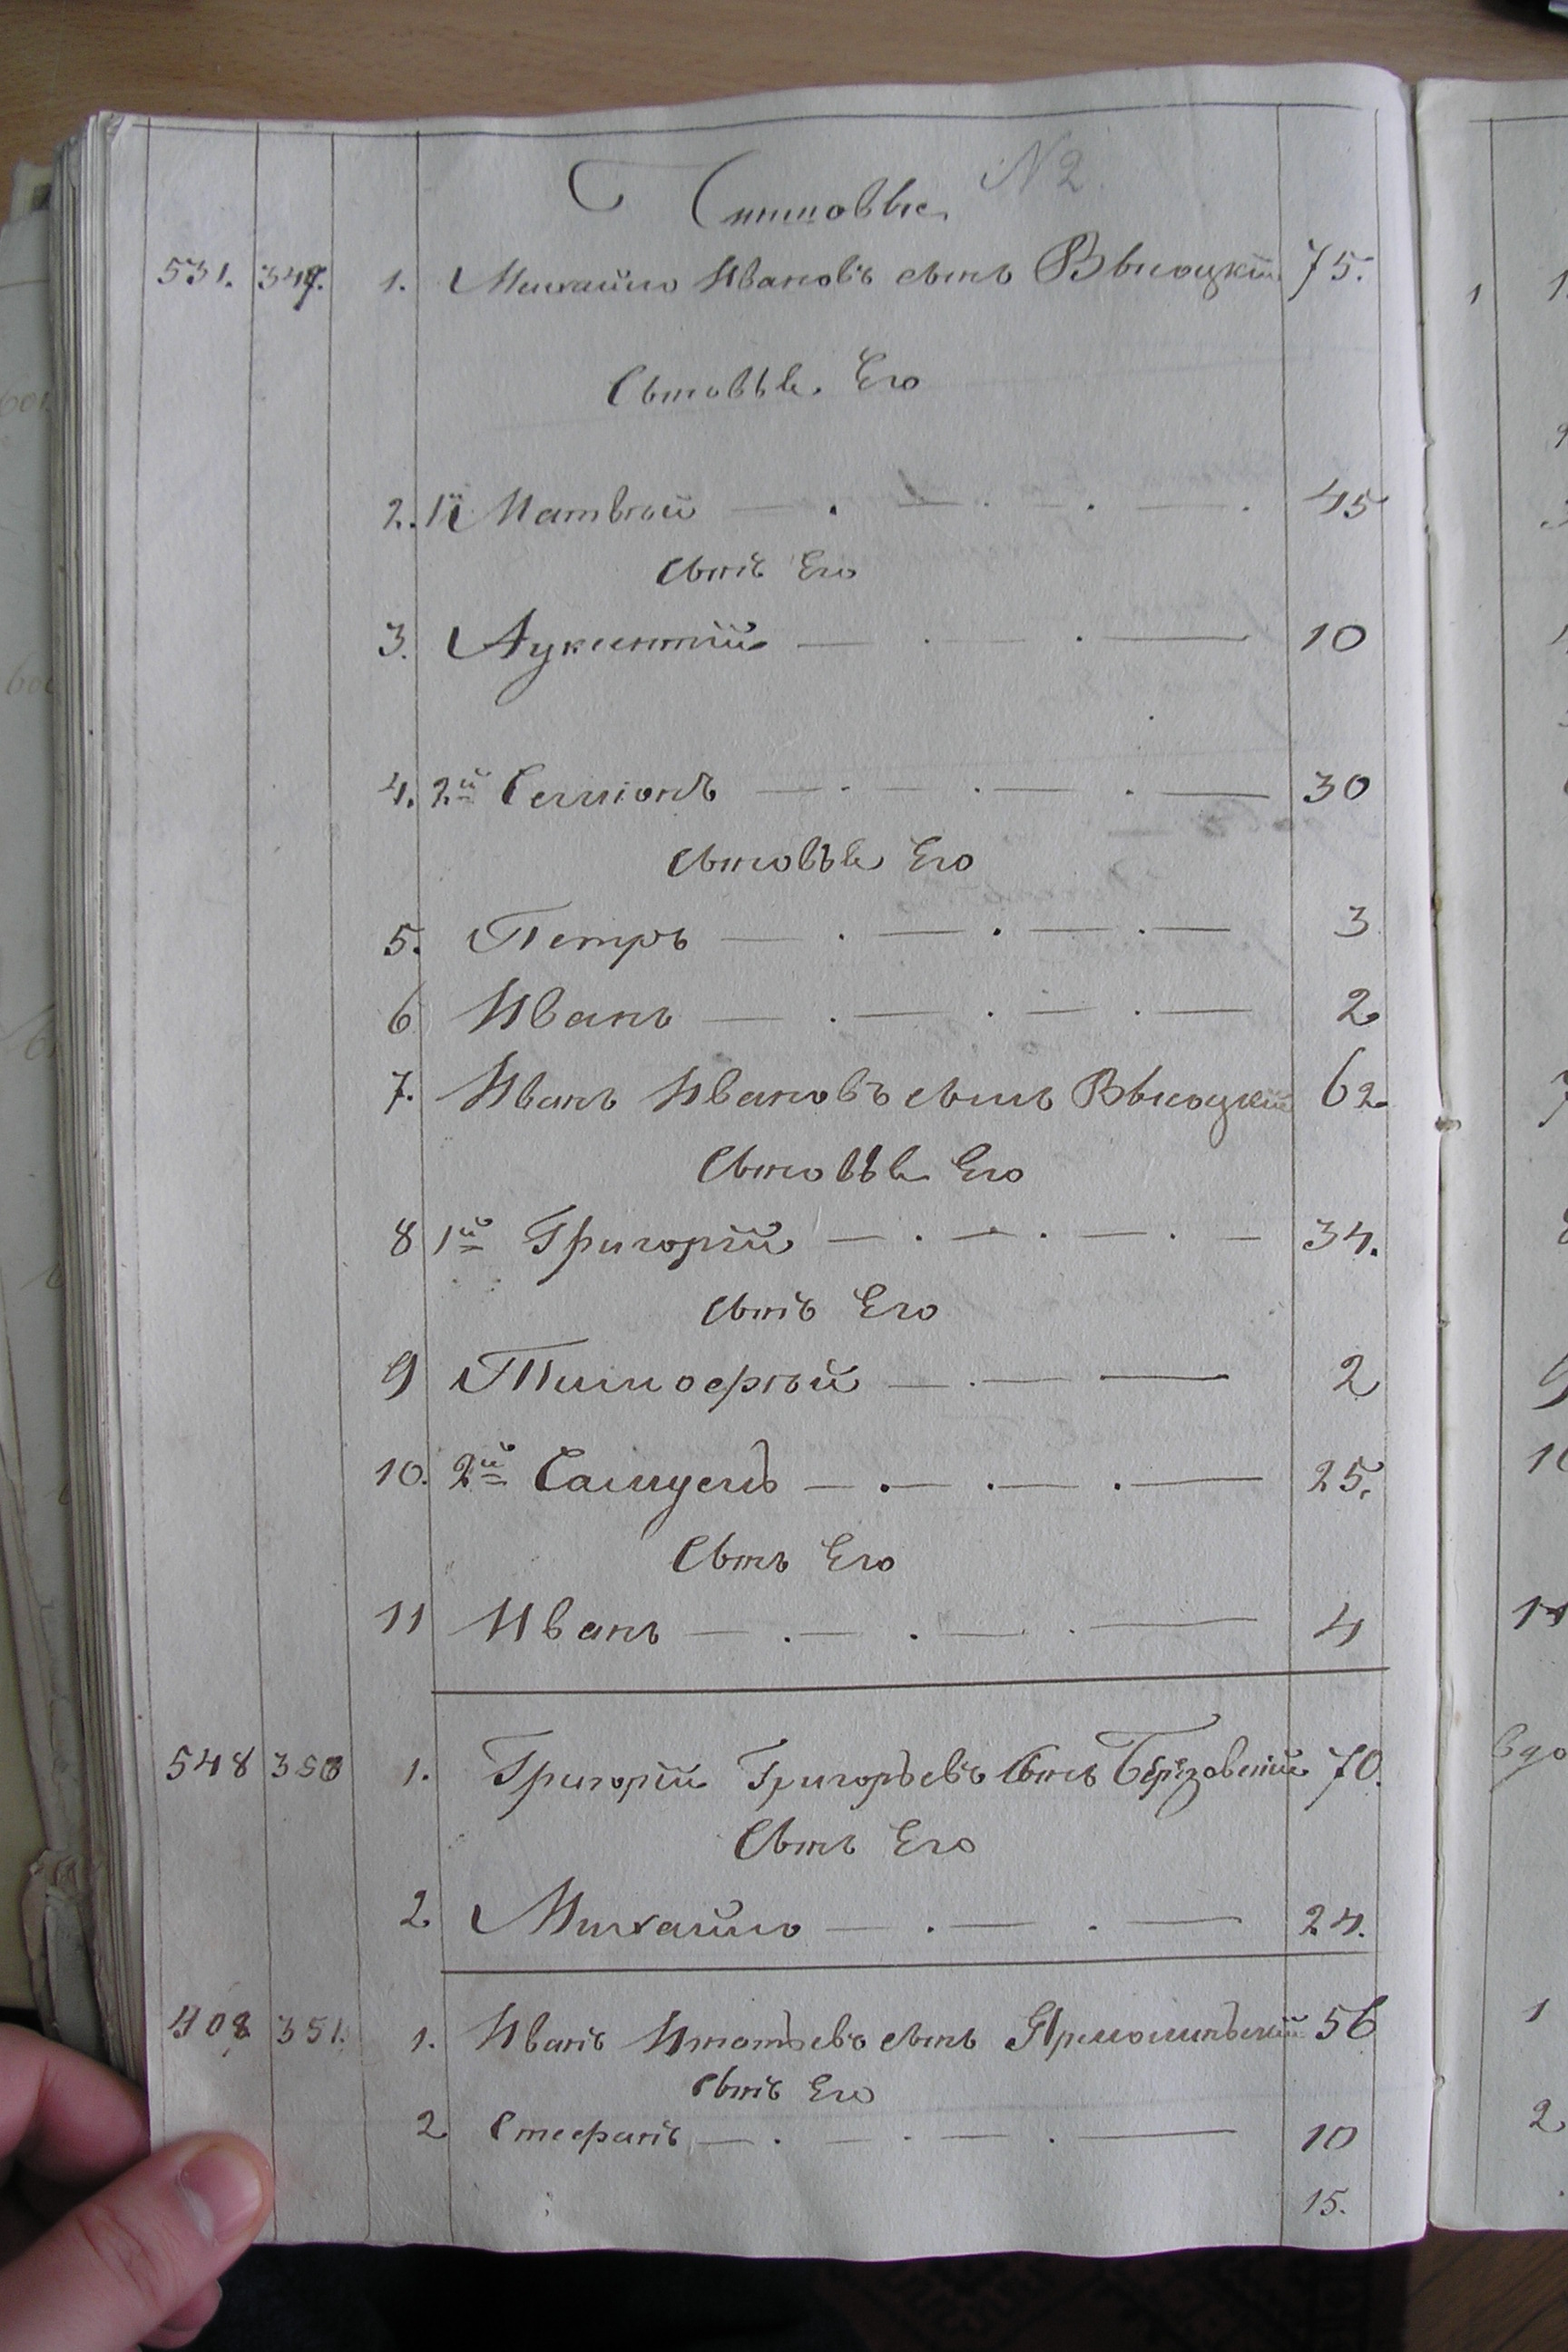 N 2.
531. 349. 1. Михайло Ивановъ сынъ Высоцкій 75.
Сыновья Его
2. 1й Матвѣй — . — . — . — . 45
Сынъ Его
3. Аукентій — . — . — 10
4. 2й Семіонъ — . — . — . — 30
Сыновья Его
5. Петръ — . — . — . — 3
6 Иванъ — . — . — . — 2
7. Иванъ Ивановъ сынъ Высоцкій 62
Сыновья Его
8 1й Григорій — . — . — . — 34.
Сынъ Его
9 Тимофѣй — . — — 2
10. 2й Самуель — . — . — . — 25.
Сынъ Его
11 Иванъ — . — . — . — 4
548 350 1. Григорій Григорьевъ Сынъ Берёзовскій 70.
Сынъ Его
2 Михайло — . — . — 24.
408 351. 1. Иванъ Игнатьевъ сынъ Ярмолинскій 56
Сынъ Его
2 Стефанъ — . — . — . — 10
15.